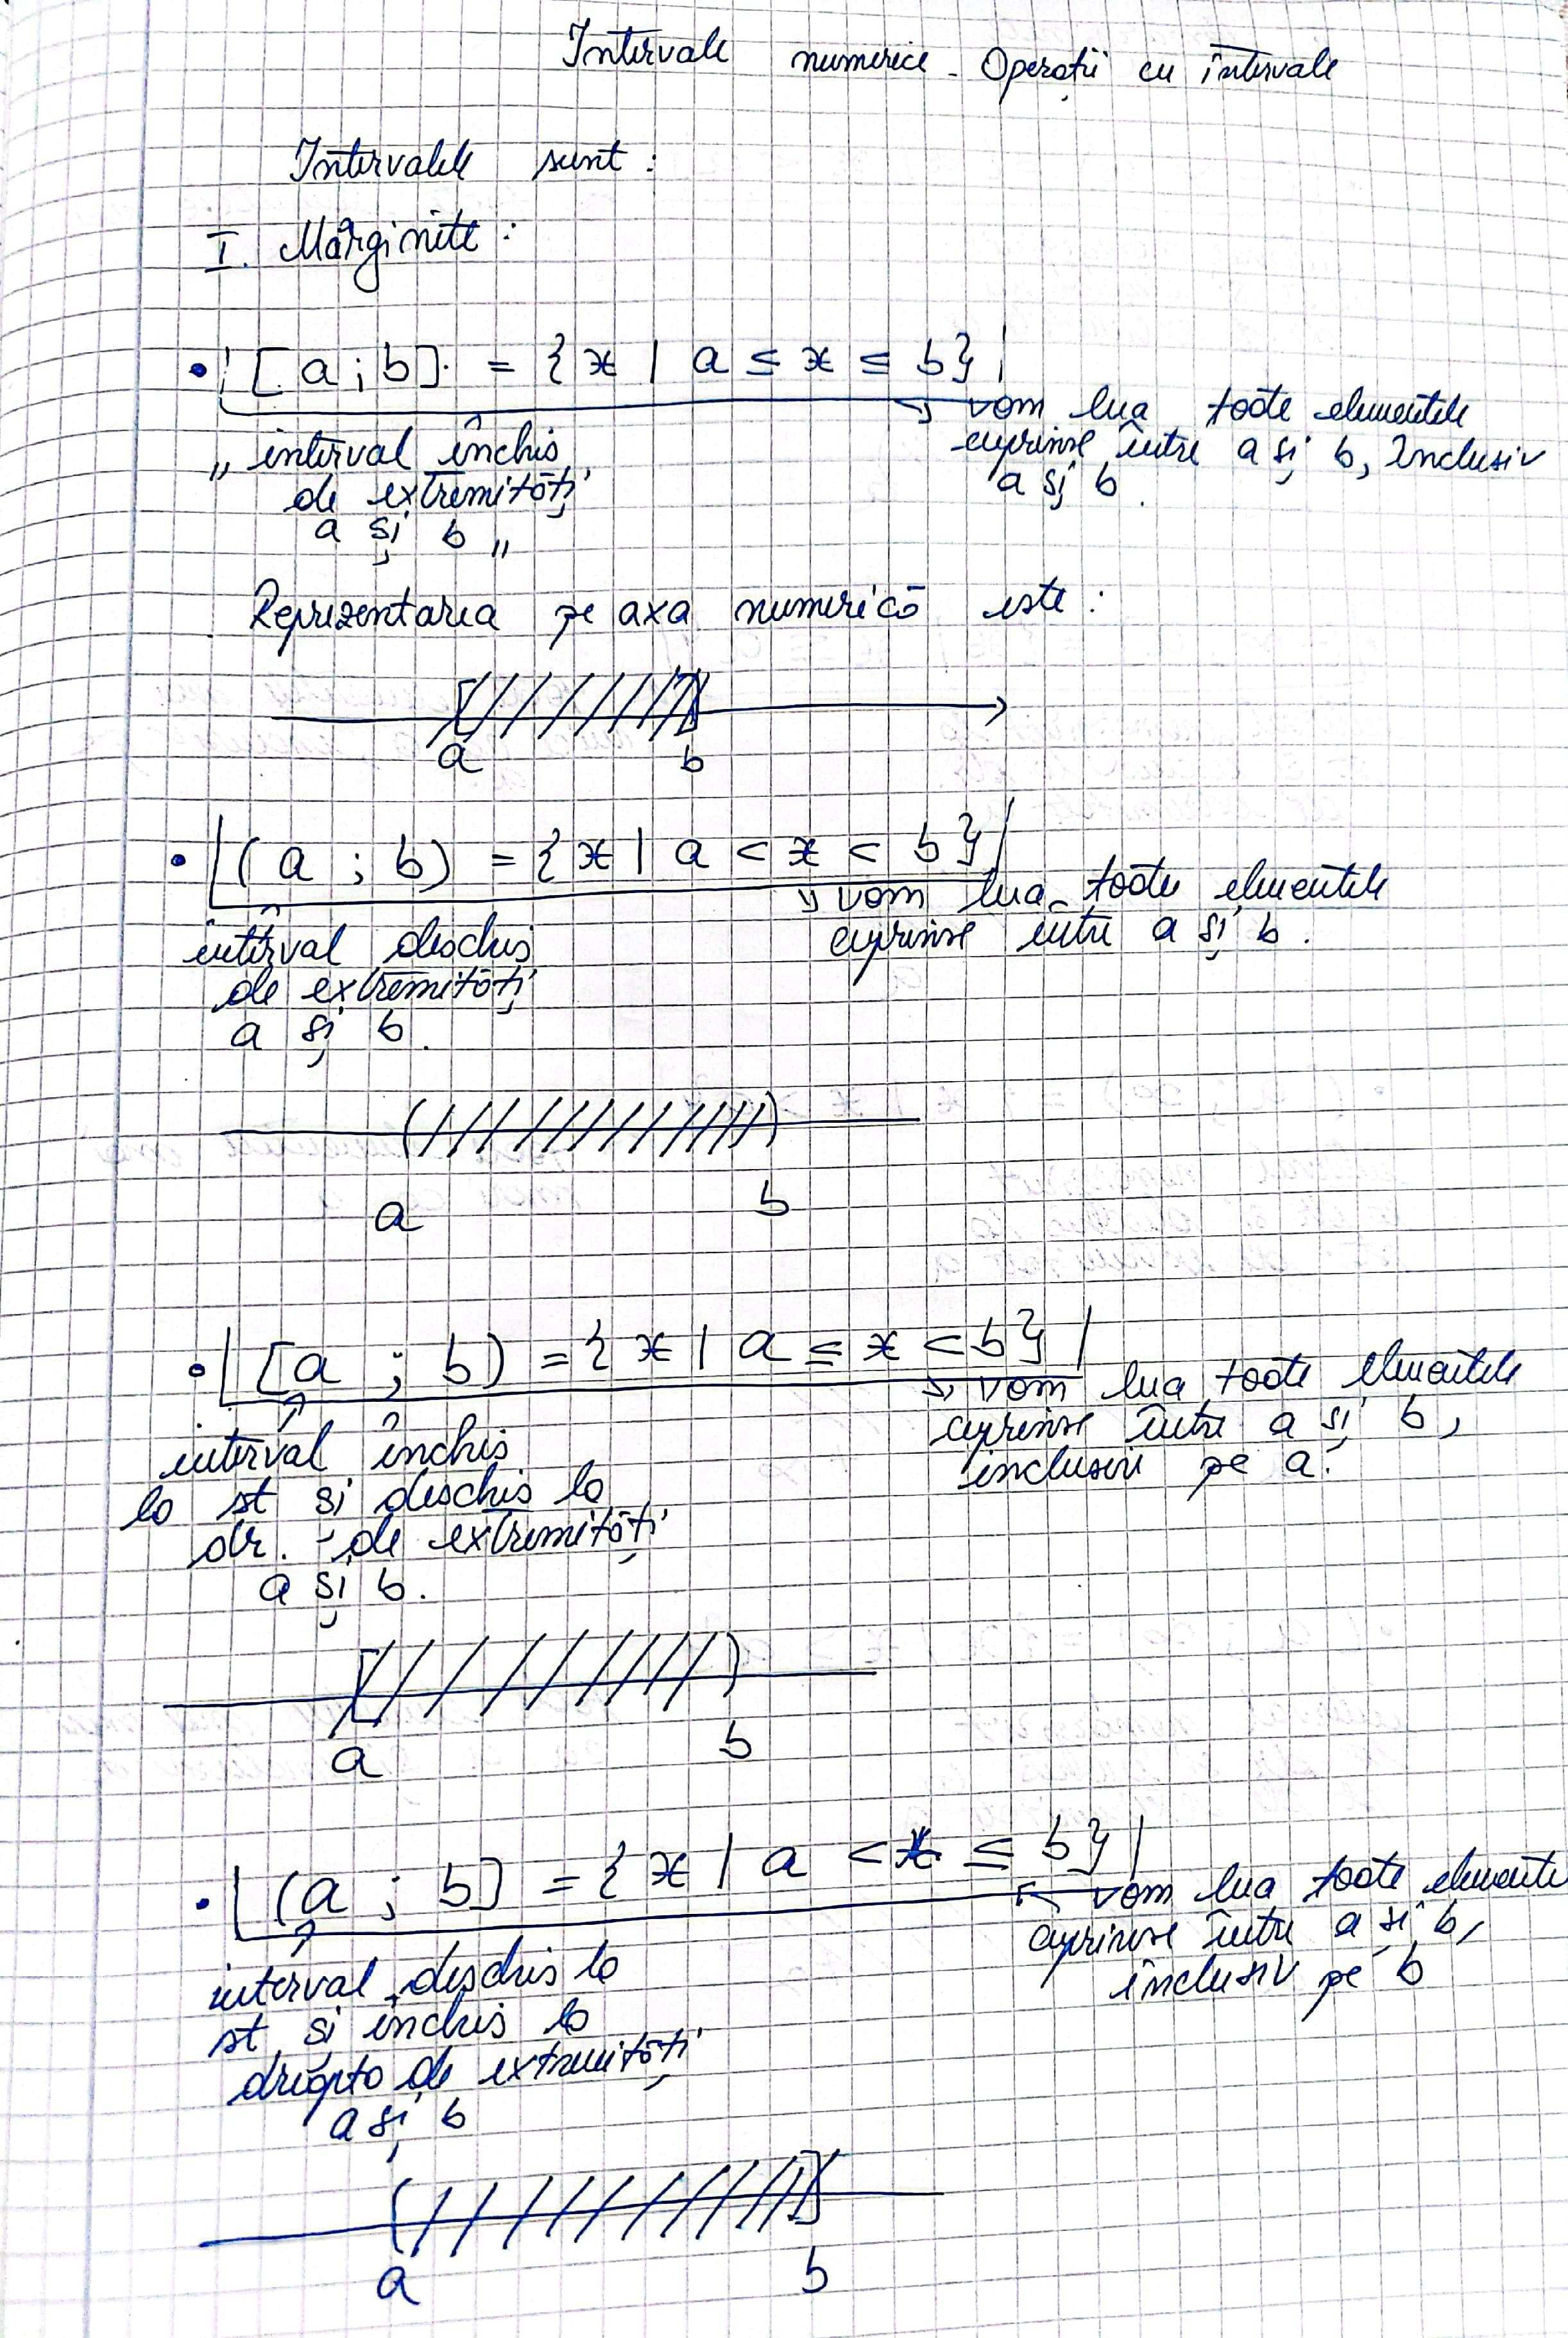 Intervale numerice. Operații cu intervale
Intervalele sunt:
I. Mărginite:
• [a;b] = {x | a ≤ x ≤ b}
→ vom lua toate elementele
cuprinse între a și b, inclusiv
a și b.
„ interval închis
de extremități
a și b „
Reprezentarea pe axa numerică este:
a b
• (a ; b) = {x | a < x < b}
→ vom lua toate elementele
cuprinse între a și b.
interval deschis
de extremități
a și b.
a b
• [a ; b) = {x | a ≤ x < b}
→ vom lua toate elementele
cuprinse între a și b,
inclusiv pe a.
interval închis
la st și deschis la
dr. de extremități
a și b.
a b
• (a ; b] = {x | a < x ≤ b}
vom lua toate elemente
cuprinse între a și b,
inclusiv pe b
interval deschis la
st și închis la
dreapta de extremități
a și b
a b